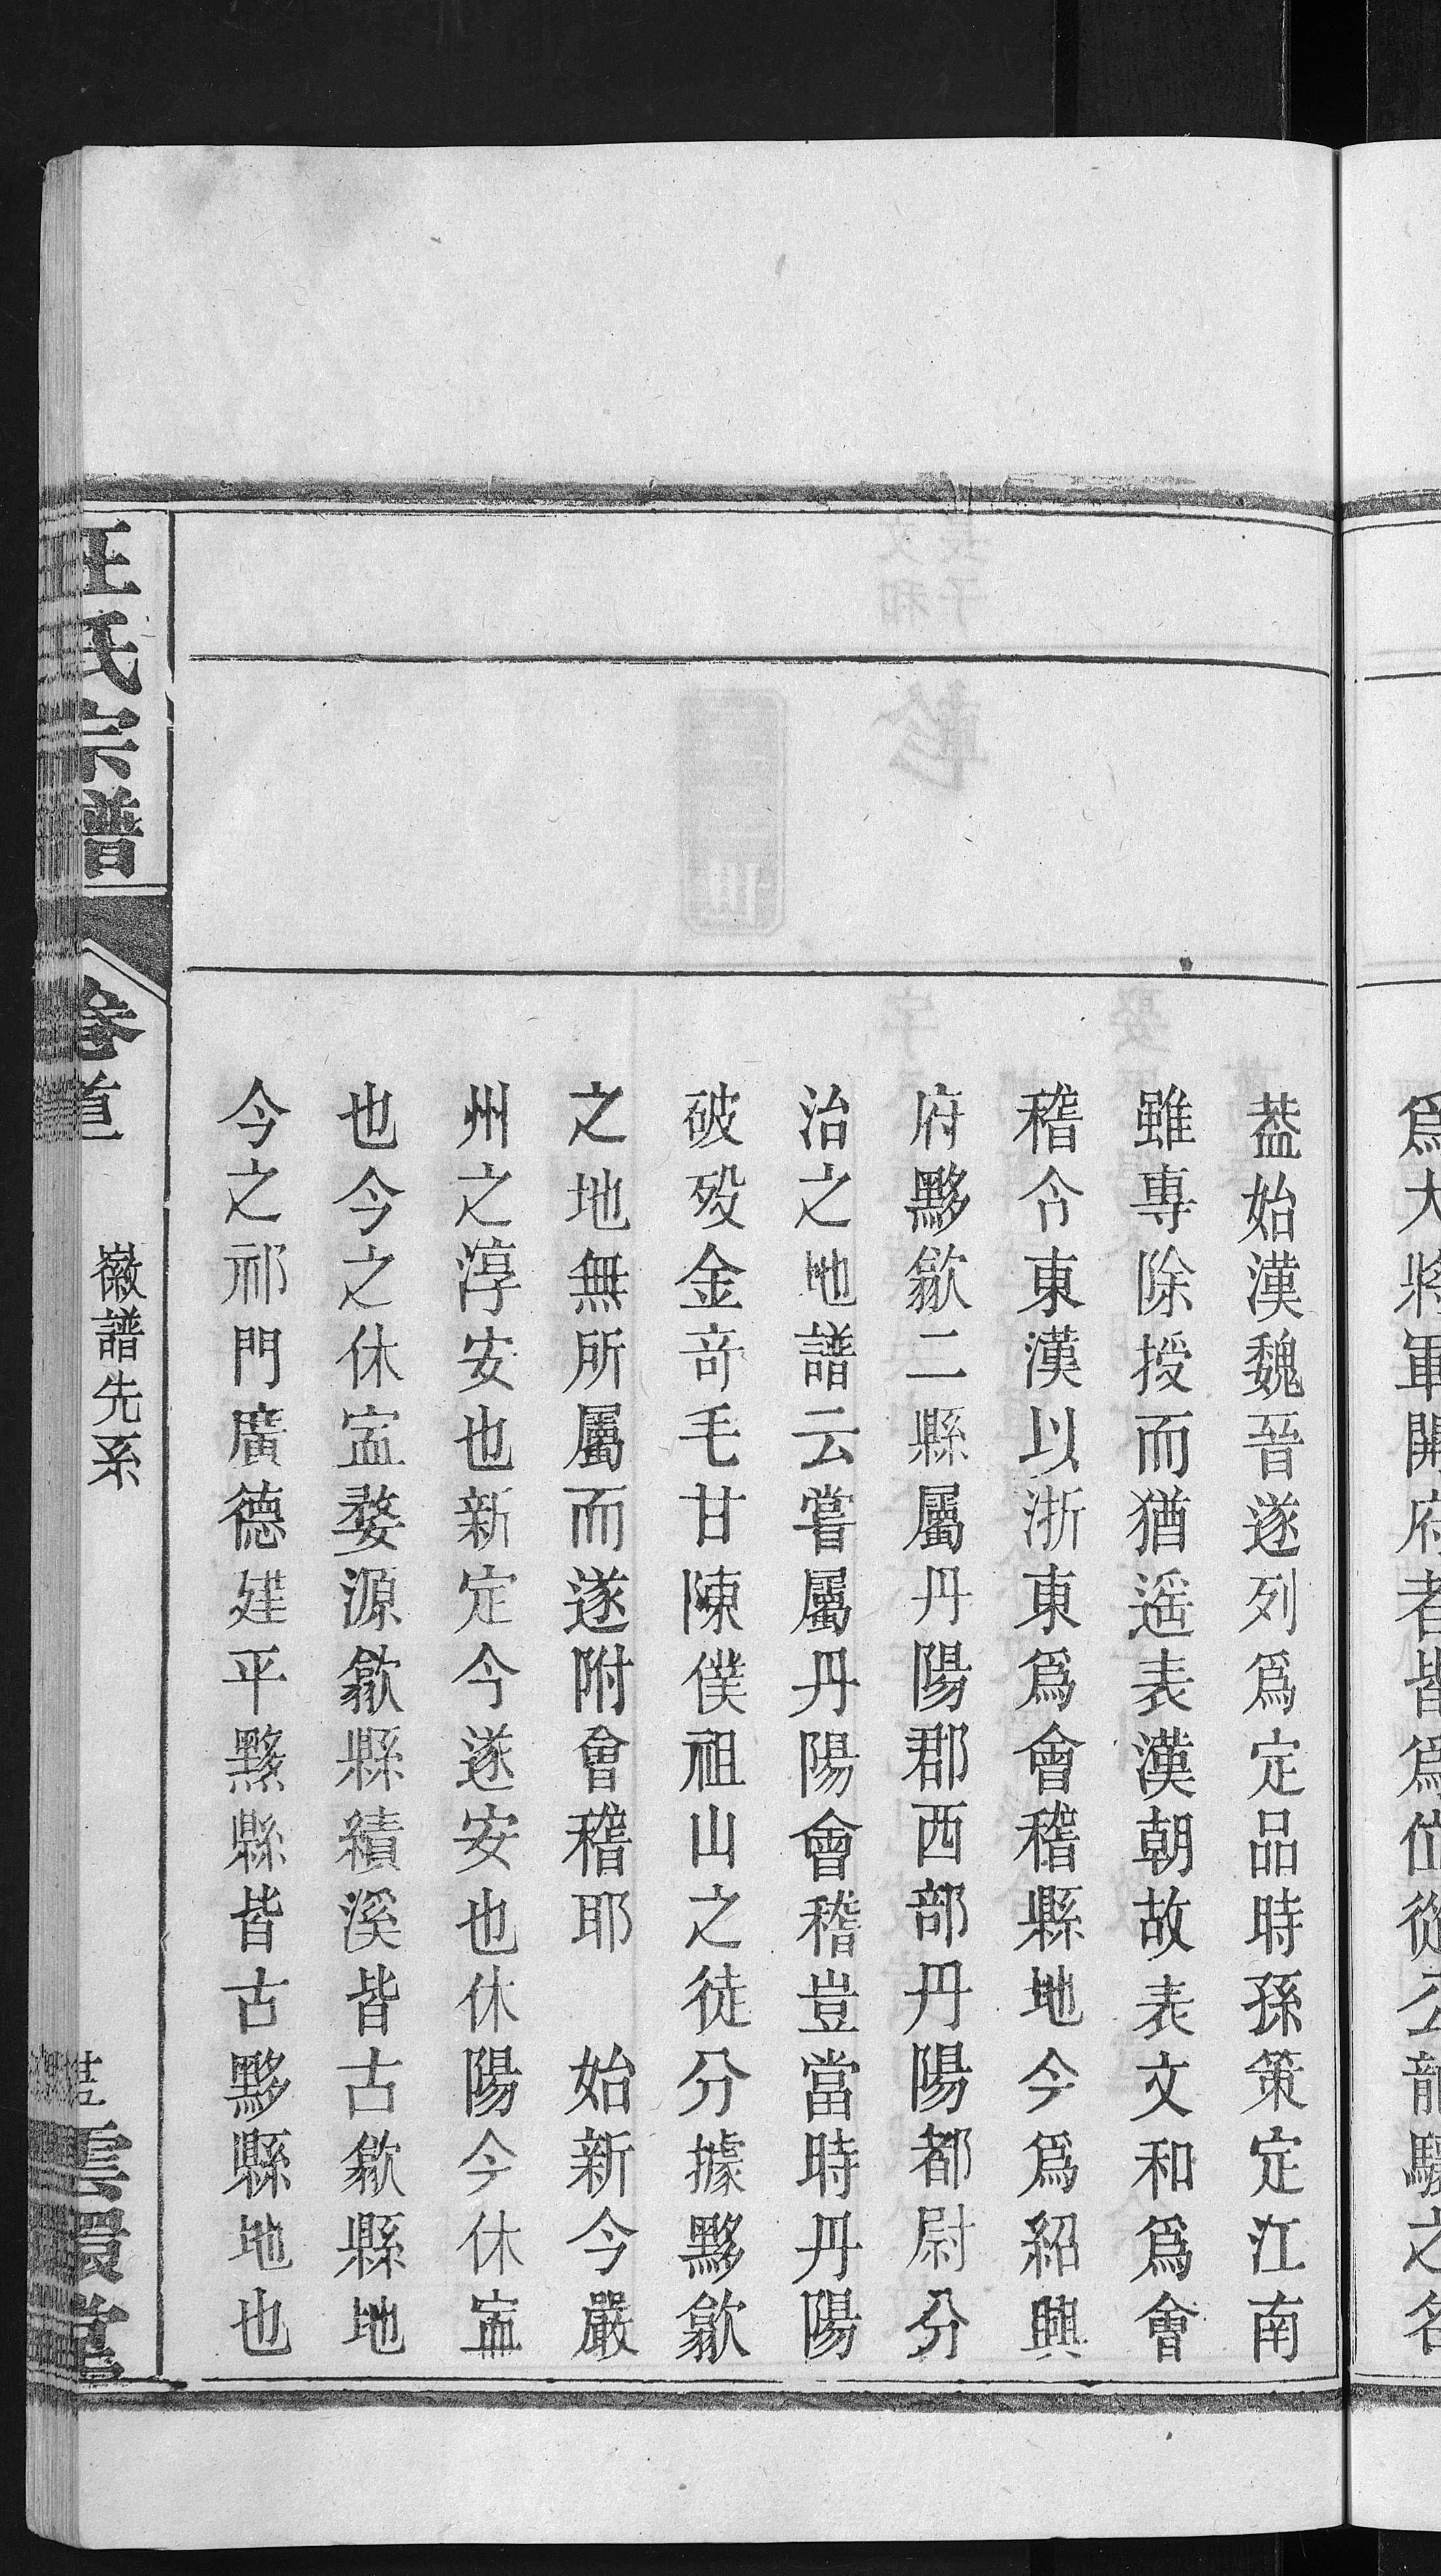 爲大將軍開府者皆爲位從公龍驤之名
葢始漢魏晉遂列爲定品時孫策定江南
雖專除授而猶遥表漢朝故表文和爲會
稽令東漢以浙東爲會稽縣地今爲紹興
府黟歙二縣屬丹陽郡西部丹陽都尉分
治之地譜云嘗屬丹陽會稽豈當時丹陽
破殁金竒毛甘陳僕祖山之徒分據黟歙
之地無所屬而遂附會稽耶　始新今嚴
州之淳安也新定今遂安也休陽今休寍
也今之休寍婺源歙縣績溪皆古歙縣地
今之祁門廣德建平黟縣皆古黟縣地也
汪氏宗譜
卷首
徽譜先系
雲環堂